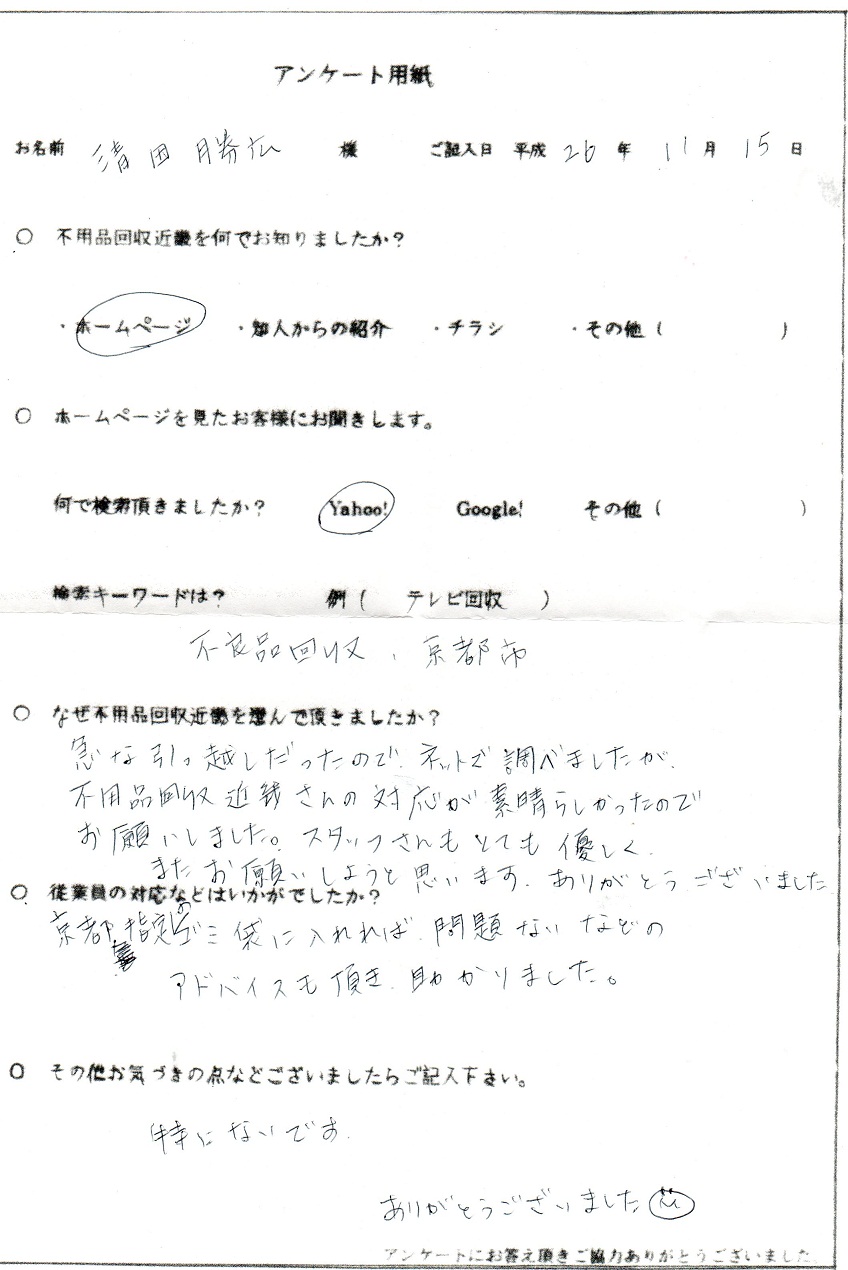 アンケート用紙
お名前 清田勝広 様 ご記入日 平成 26 年 11 月 15 日
○ 不用品回収近畿を何でお知りましたか?
・ホームページ ・知人からの紹介 ・チラシ ・その他 ( )
○ ホームページを見たお客様にお聞きします。
何で検索頂きましたか? Yahoo! Google! その他 ( )
検索キーワードは? 例 ( テレビ回収 )
不良品回収、京都市
○ なぜ不用品回収近畿を選んで頂きましたか?
急な引っ越しだったので、ネットで調べましたが、
不用品回収近畿さんの対応が素晴らしかったので
お願いしました。スタッフさんもとても優しく、
またお願いしようと思います。ありがとうございました
○ 従業員の対応などはいかがでしたか?
京都指定のゴミ袋に入れれば、問題ないなどの
アドバイスも頂き、助かりました。
○ その他お気づきの点などございましたらご記入下さい。
特にないです。
ありがとうございました
アンケートにお答え頂きご協力ありがとうございました。